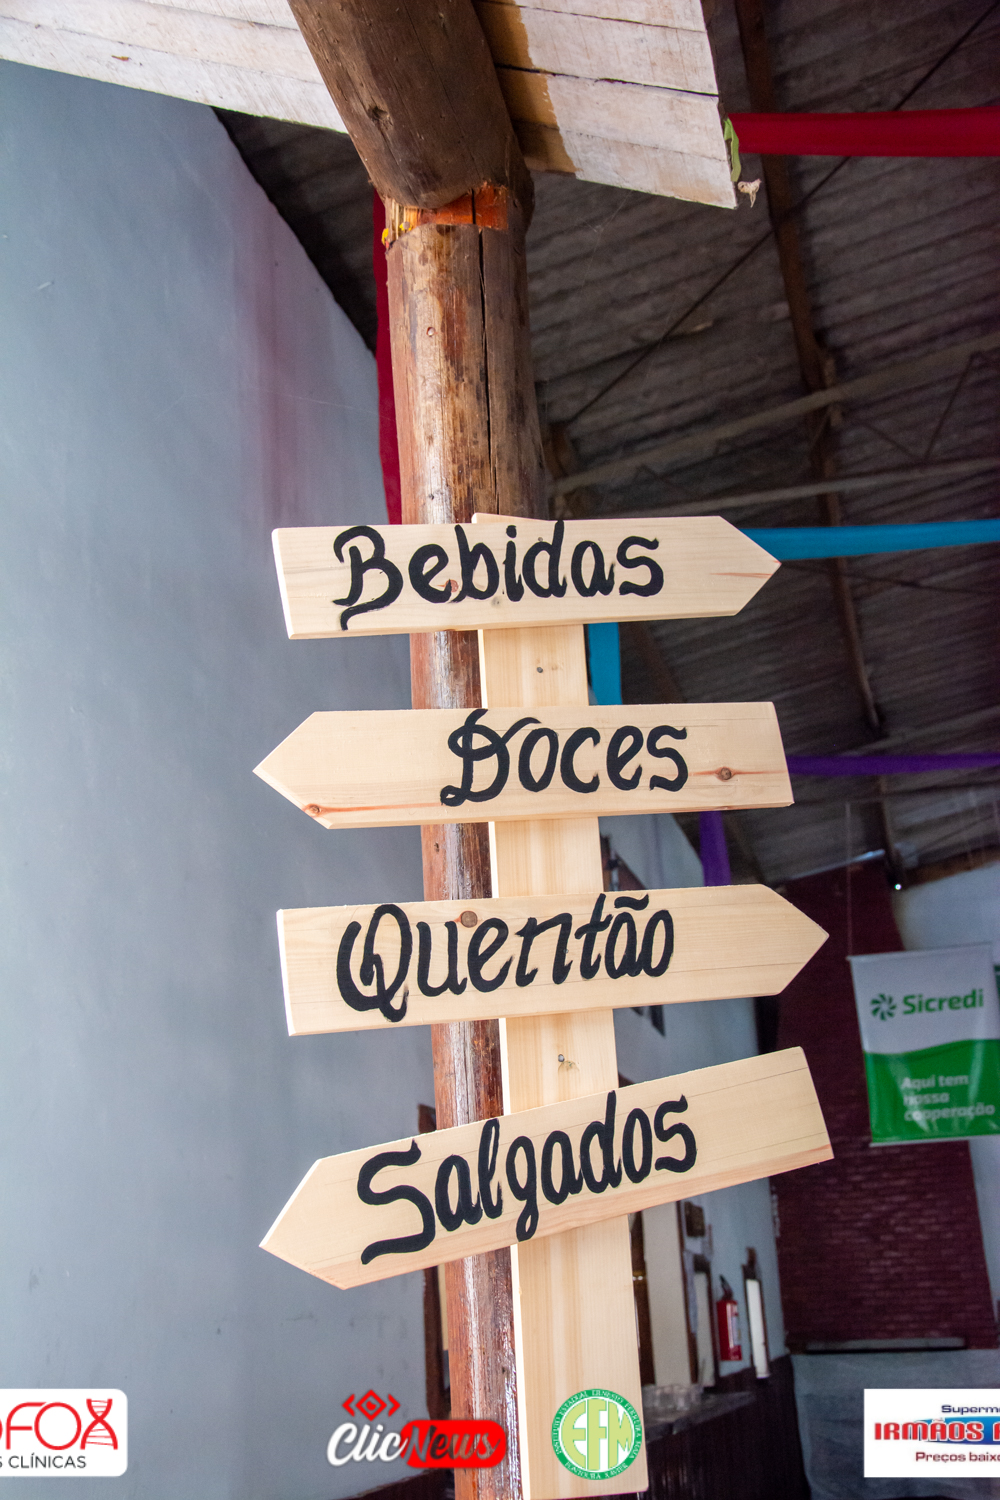 Bebidas
Doces
Quentão
Salgados
Sicredi
Aqui tem
nossa
cooperação
CLÍNICAS
ClicNews
EFM
IRMÃOS
Preços